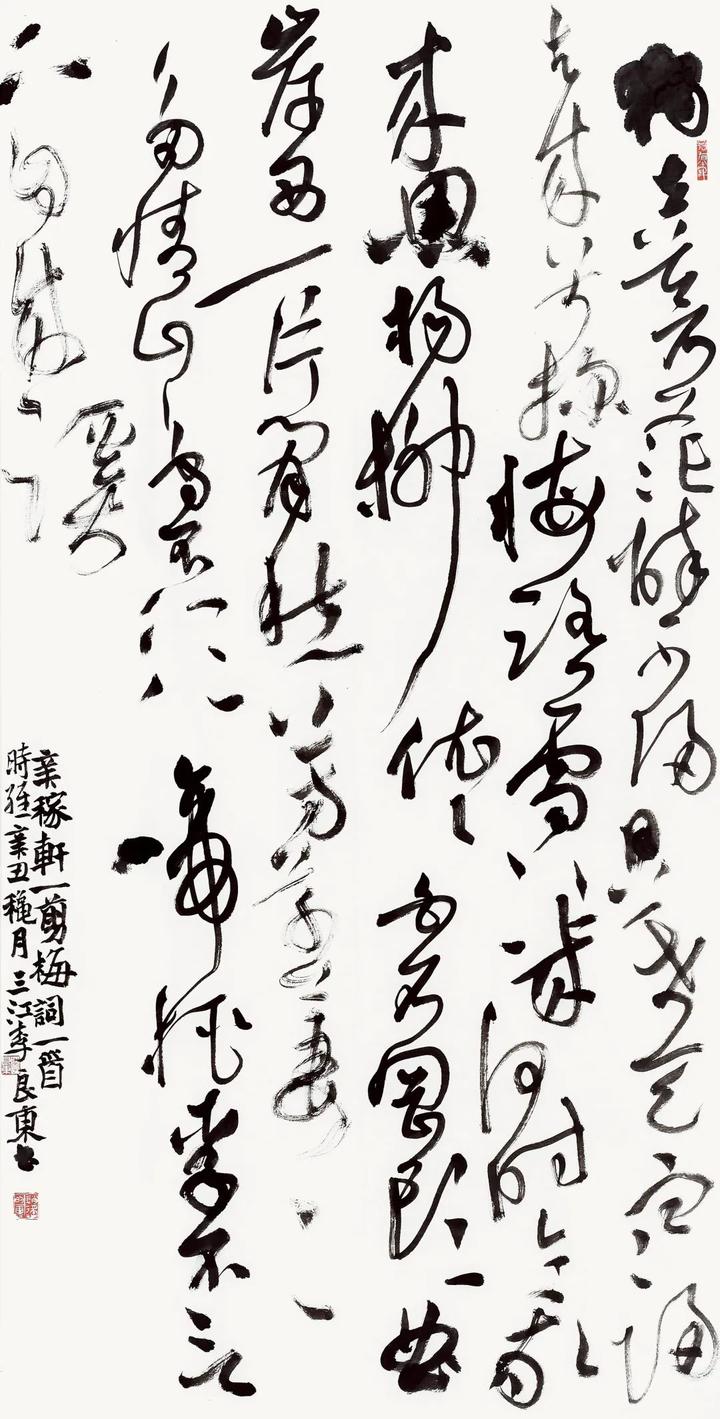 獨立蒼茫醉不歸日暮天寒歸
去來兮探梅踏雪幾何時今我
來思楊柳依依白石岡頭曲
岸西一片閒愁芳草萋萋
多情山鳥不須啼桃李不言
下自成蹊
辛稼軒一剪梅詞一首
時維辛丑穐月三江李良東書